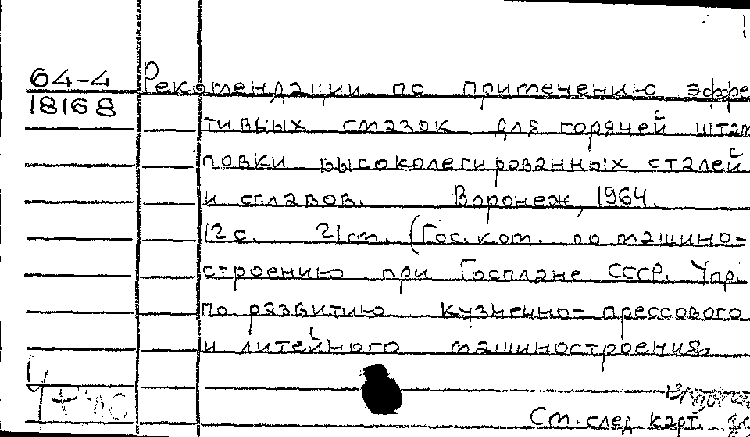 64-4 Рекомендации по применению эффе
18168
тивных смазок для горячей штам
повки высоколегированных сталей
и сплавов. Воронеж, 1964.
12 с. 21 см. (Гос. ком. по машино-
строению при Госплане СССР. Упр.
по развитию кузнечно-прессового
и литейного машиностроения.
См. след. карт.